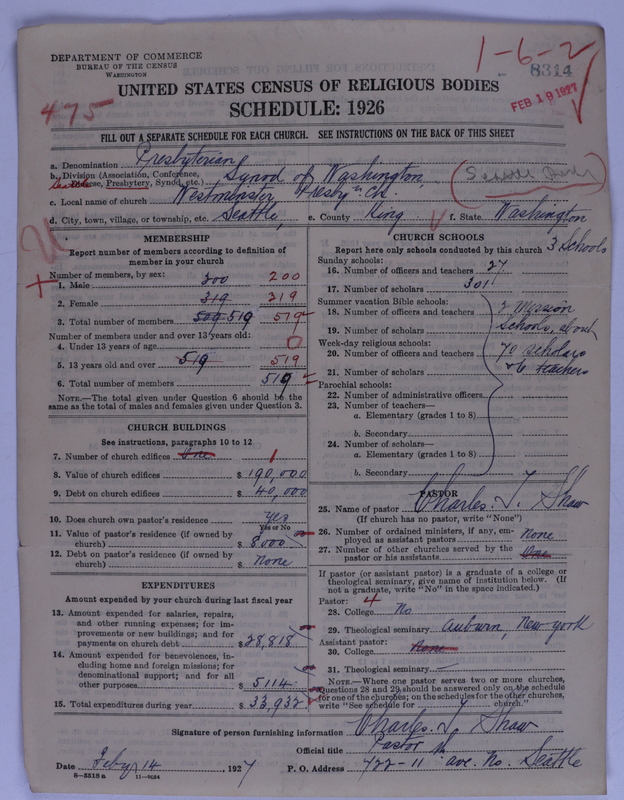 DEPARTMENT OF COMMERCE
BUREAU OF THE CENSUS
WASHINGTON
1-6-2
8314
FEB 19 1927
475
UNITED STATES CENSUS OF RELIGIOUS BODIES
SCHEDULE: 1926
FILL OUT A SEPARATE SCHEDULE FOR EACH CHURCH. SEE INSTRUCTIONS ON THE BACK OF THIS SHEET
a. Denomination Presbyterian
b. Division (Association, Conference, Synod of Washington,
Seattle Diocese, Presbytery, Synod, etc.)
(Seattle
c. Local name of church Westminster Presbyn Ch.
d. City, town, village, or township, etc. Seattle, e. County King f. State Washington
MEMBERSHIP
Report number of members according to definition of
member in your church
Number of members, by sex:
1. Male 200 200
2. Female 319 319
3. Total number of members 519 519
Number of members under and over 13 years old:
4. Under 13 years of age 0
5. 13 years old and over 519 519
6. Total number of members 519
NOTE.—The total given under Question 6 should be the
same as the total of males and females given under Question 3.
CHURCH BUILDINGS
See instructions, paragraphs 10 to 12
7. Number of church edifices One 1
8. Value of church edifices $ 190,000
9. Debt on church edifices $ 40,000
10. Does church own pastor's residence yes
Yes or No
11. Value of pastor's residence (if owned by
church) $ 8000
12. Debt on pastor's residence (if owned by
church) $ None
EXPENDITURES
Amount expended by your church during last fiscal year
13. Amount expended for salaries, repairs,
and other running expenses; for im-
provements or new buildings; and for
payments on church debt $ 28,818
14. Amount expended for benevolences, in-
cluding home and foreign missions; for
denominational support; and for all
other purposes $ 5114
15. Total expenditures during year $ 33,932
CHURCH SCHOOLS
Report here only schools conducted by this church 3 Schools
Sunday schools:
16. Number of officers and teachers 27
17. Number of scholars 301
Summer vacation Bible schools:
18. Number of officers and teachers 2 Mission
19. Number of scholars Schools, about
Week-day religious schools:
20. Number of officers and teachers 70 scholars
21. Number of scholars & 6 teachers
Parochial schools:
22. Number of administrative officers
23. Number of teachers—
a. Elementary (grades 1 to 8)
b. Secondary
24. Number of scholars—
a. Elementary (grades 1 to 8)
b. Secondary
PASTOR
25. Name of pastor Charles T. Shaw
(If church has no pastor, write "None")
26. Number of ordained ministers, if any, em-
ployed as assistant pastors None
27. Number of other churches served by the
pastor or his assistants One
If pastor (or assistant pastor) is a graduate of a college or
theological seminary, give name of institution below. (If
not a graduate, write "No" in the space indicated.)
Pastor: 4
28. College No
29. Theological seminary Auburn, New York
Assistant pastor:
30. College None
31. Theological seminary —
NOTE.—Where one pastor serves two or more churches,
Questions 28 and 29 should be answered only on the schedule
for one of the churches; on the schedules for the other churches,
write "See schedule for church."
Signature of person furnishing information Charles T Shaw
Official title Pastor
Date Feby 14, 1927 P. O. Address 722-11 ave. No. Seattle
8—5518 a 11—9024